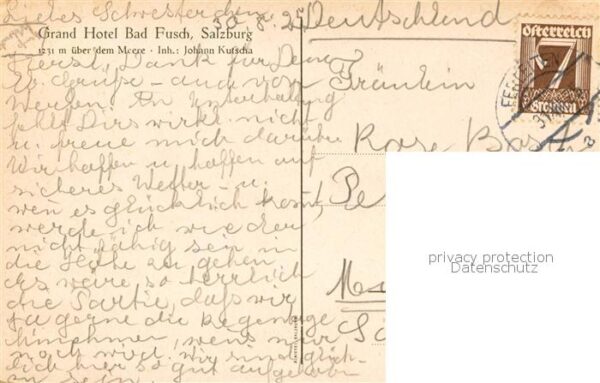 Liebes Schwesterchen,
30. 8. 25
Deutschland
Grand Hotel Bad Fusch, Salzburg
1231 m über dem Meere · Inh.: Johann Kutscha
Dank für Deine
Grüße – auch von
Werfen. An Unterhaltung
fehlt Dirs wirkl. nicht
u. freue mich darüber
Wir hoffen u. hoffen auf
sicheres Wetter – u.
wenn es glücklich kommt,
werde ich wieder
nicht fähig sein in
die Höhe zu gehen
es wäre so herrlich
die Partie, daß wir
ja gerne die Regentage
hinnehmen, wenns nur
noch wird. Wir sind glück-
lich hier so gut aufgehoben
zu sein.
Fräulein
Rose
Österreich
7
Groschen
privacy protection
Datenschutz